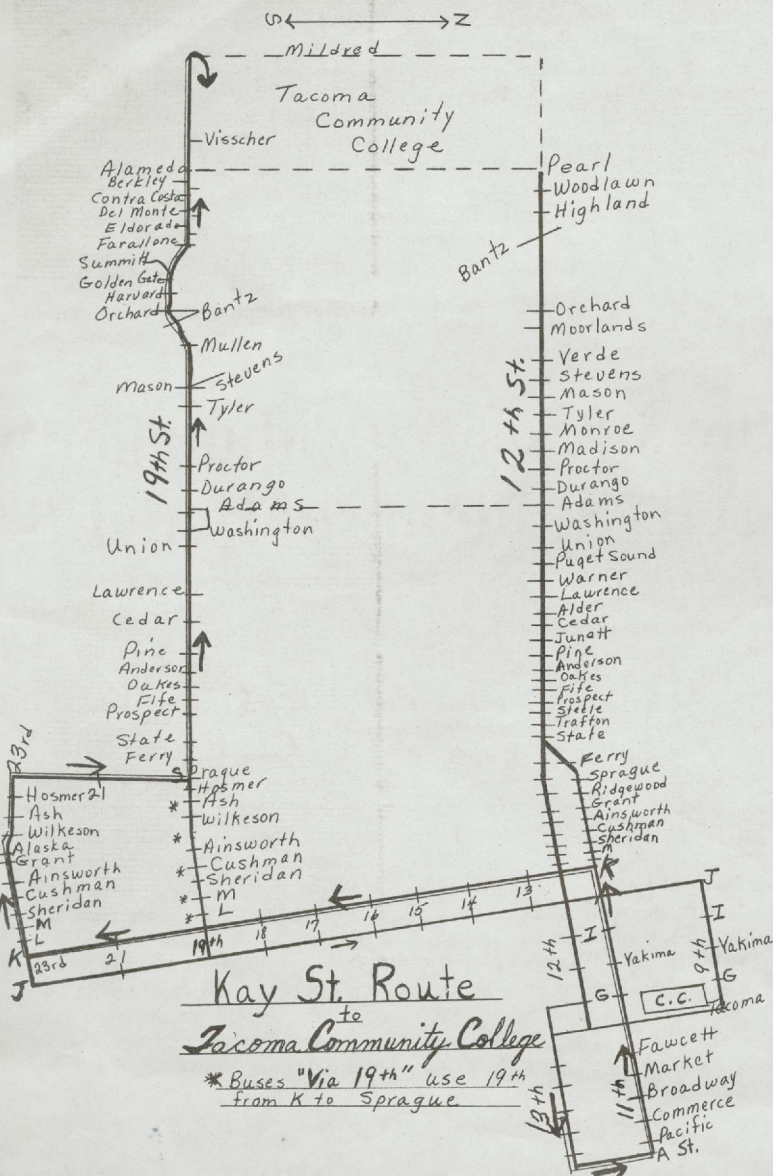 S N
Mildred
Tacoma
Community
College
Visscher
Alameda
Berkley
Contra Costa
Del Monte
Eldorado
Farallone
Summitt
Golden Gate
Harvard
Orchard
Bantz
Mullen
Stevens
Mason
Tyler
19th St.
Proctor
Durango
Adams
Washington
Union
Lawrence
Cedar
Pine
Anderson
Oakes
Fife
Prospect
State
Ferry
Sprague
Hosmer
* Ash
Wilkeson
* Ainsworth
Cushman
* Sheridan
* M
* L
23rd
Hosmer 21
Ash
Wilkeson
Alaska
Grant
Ainsworth
Cushman
Sheridan
M
L
K
J
23rd
21
19th
18
17
16
15
14
13
Pearl
Woodlawn
Highland
Bantz
Orchard
Moorlands
Verde
Stevens
Mason
Tyler
Monroe
Madison
Proctor
Durango
Adams
Washington
Union
Puget Sound
Warner
Lawrence
Alder
Cedar
Junett
Pine
Anderson
Oakes
Fife
Prospect
Steele
Trafton
State
12th St.
Ferry
Sprague
Ridgewood
Grant
Ainsworth
Cushman
Sheridan
M
K
J
I
I
12th
Yakima
9th
Yakima
G
G
C.C.
Tacoma
Fawcett
Market
Broadway
Commerce
Pacific
A St.
11th
13th
Kay St. Route
to
Tacoma Community College
* Buses "Via 19th" use 19th
from K to Sprague